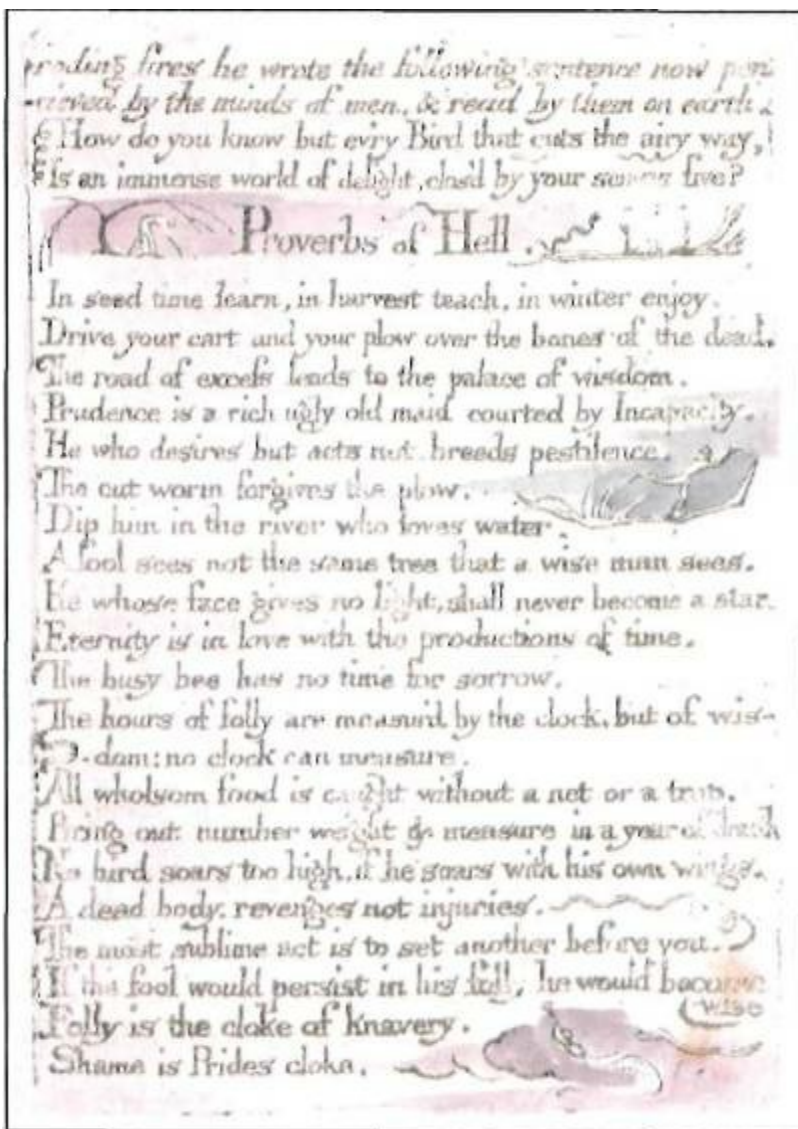 roding fires he wrote the following sentence now per
cieved by the minds of men, & read by them on earth.
How do you know but ev'ry Bird that cuts the airy way,
Is an immense world of delight, clos'd by your senses five?
Proverbs of Hell.
In seed time learn, in harvest teach, in winter enjoy.
Drive your cart and your plow over the bones of the dead.
The road of excess leads to the palace of wisdom.
Prudence is a rich ugly old maid courted by Incapacity.
He who desires but acts not, breeds pestilence.
The cut worm forgives the plow.
Dip him in the river who loves water.
A fool sees not the same tree that a wise man sees.
He whose face gives no light, shall never become a star.
Eternity is in love with the productions of time.
The busy bee has no time for sorrow.
The hours of folly are measur'd by the clock, but of wis-
-dom: no clock can measure.
All wholsom food is caught without a net or a trap.
Bring out number weight & measure in a year of dearth
No bird soars too high, if he soars with his own wings.
A dead body. revenges not injuries.
The most sublime act is to set another before you.
If the fool would persist in his folly he would become
wise
Folly is the cloke of knavery.
Shame is Prides cloke.